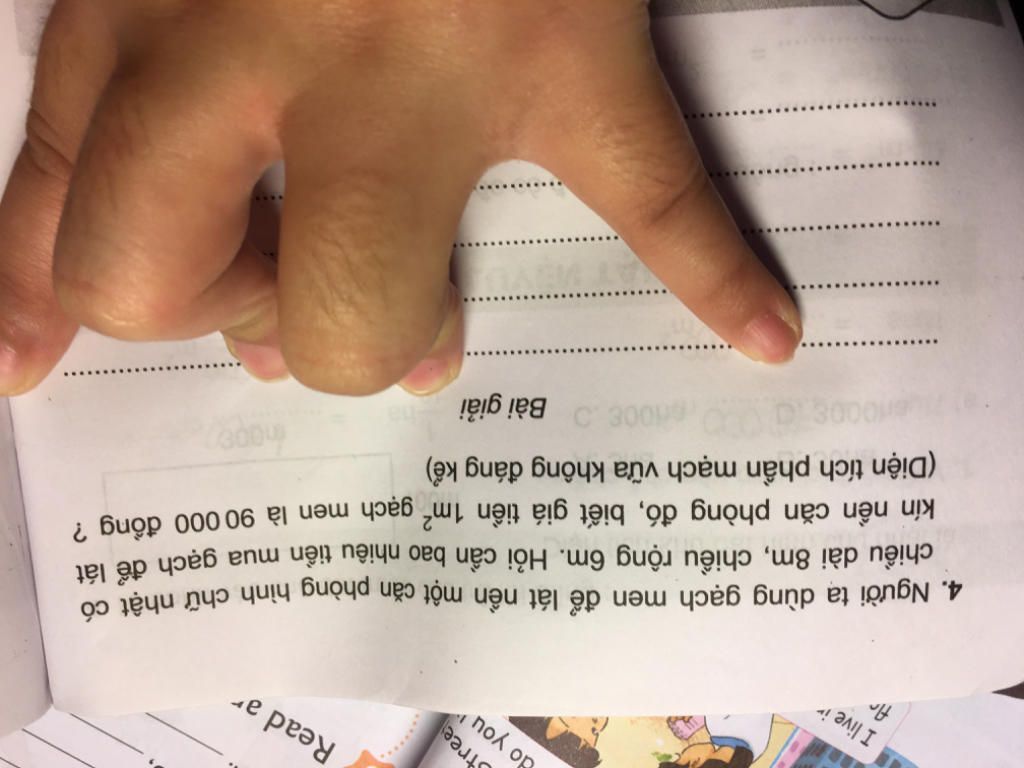 4. Người ta dùng gạch men để lát nền một căn phòng hình chữ nhật có
chiều dài 8m, chiều rộng 6m. Hỏi cần bao nhiêu tiền mua gạch để lát
kín nền căn phòng đó, biết giá tiền 1m² gạch men là 90 000 đồng ?
(Diện tích phần mạch vữa không đáng kể)
Bài giải
Read
do you
I live in